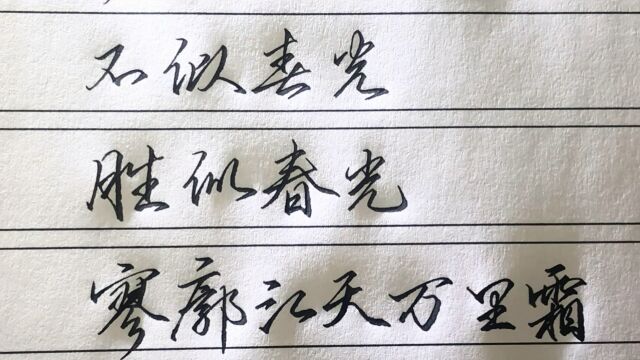 不似春光
胜似春光
寥廓江天万里霜